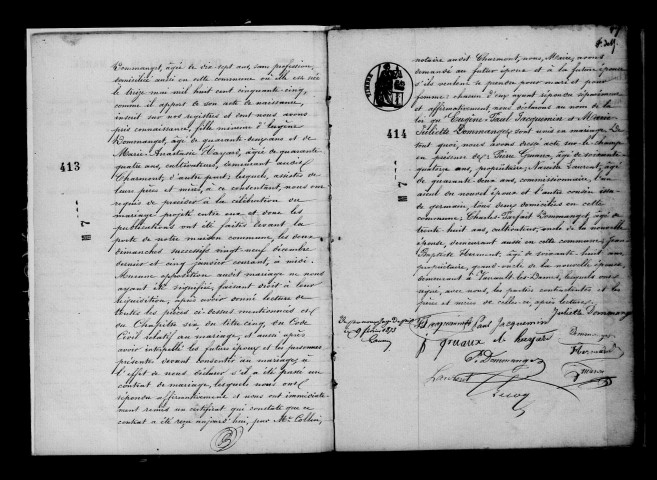 Dommanget, âgée de dix-sept ans, sans profession,
domiciliée aussi en cette commune où elle est née
le treize mai mil huit cent cinquante-cinq,
comme il appert de son acte de naissance,
inscrit sur nos registres et dont nous avons
pris connaissance, fille mineure d'Eugène
Dommanget, âgé de quarante-deux ans et de
Marie-Anastasie Hazard, âgée de quarante
quatre ans, cultivateurs, demeurant audit
Charmont, d'autre part; lesquels, assistés de
leurs pères et mères, à ce consentant, nous ont
requis de procéder à la célébration du
mariage projeté entre eux et dont les
publications ont été faites devant la
porte de notre maison commune, les deux
dimanches successifs vingt-neuf décembre
dernier et cinq janvier courant, à midi.
Aucune opposition audit mariage ne nous
ayant été signifiée, faisant droit à leur
réquisition, après avoir donné lecture de
toutes les pièces ci-dessus mentionnées et
du Chapitre six du titre cinq du Code
Civil relatif au mariage, et aussi après
avoir interpellé les futurs époux et les personnes
présentes devant consentir au mariage, à
l'effet de nous déclarer s'il a été passé un
contrat de mariage, lesquels nous ont
répondu affirmativement et nous ont immédiate-
ment remis un certificat qui constate que ce
contrat a été reçu aujourd'hui, par Me Collin,
413
III 7
notaire audit Charmont, nous, Maire, avons
demandé au futur époux et à la future épouse
s'ils veulent se prendre pour mari et pour
femme: chacun d'eux ayant répondu séparément
et affirmativement, nous déclarons au nom de la
loi que Eugène-Paul Jacquemin et Marie-
Juliette Dommanget sont unis en mariage. De
tout quoi, nous avons dressé acte sur-le-champ
en présence de Pierre, âgé de soixante-
quatorze ans, propriétaire;
de quarante-deux ans, commissionnaire, l'un
aïeul du nouvel époux et l'autre cousin issu
de germain, tous deux domiciliés en cette
commune; Charles-Parfait Dommanget, âgé de
trente-huit ans, cultivateur, oncle de la nouvelle
épouse, demeurant aussi en cette commune; Jean-
Baptiste, âgé de soixante-huit ans,
propriétaire, grand-oncle de la nouvelle épouse,
demeurant à Vanault-les-Dames, lesquels ont
signé, avec nous, les parties contractantes et les
pères et mères de celles-ci, après lecture.
414
III 7
Juliette Dommanget
Paul Jacquemin
Dommanget